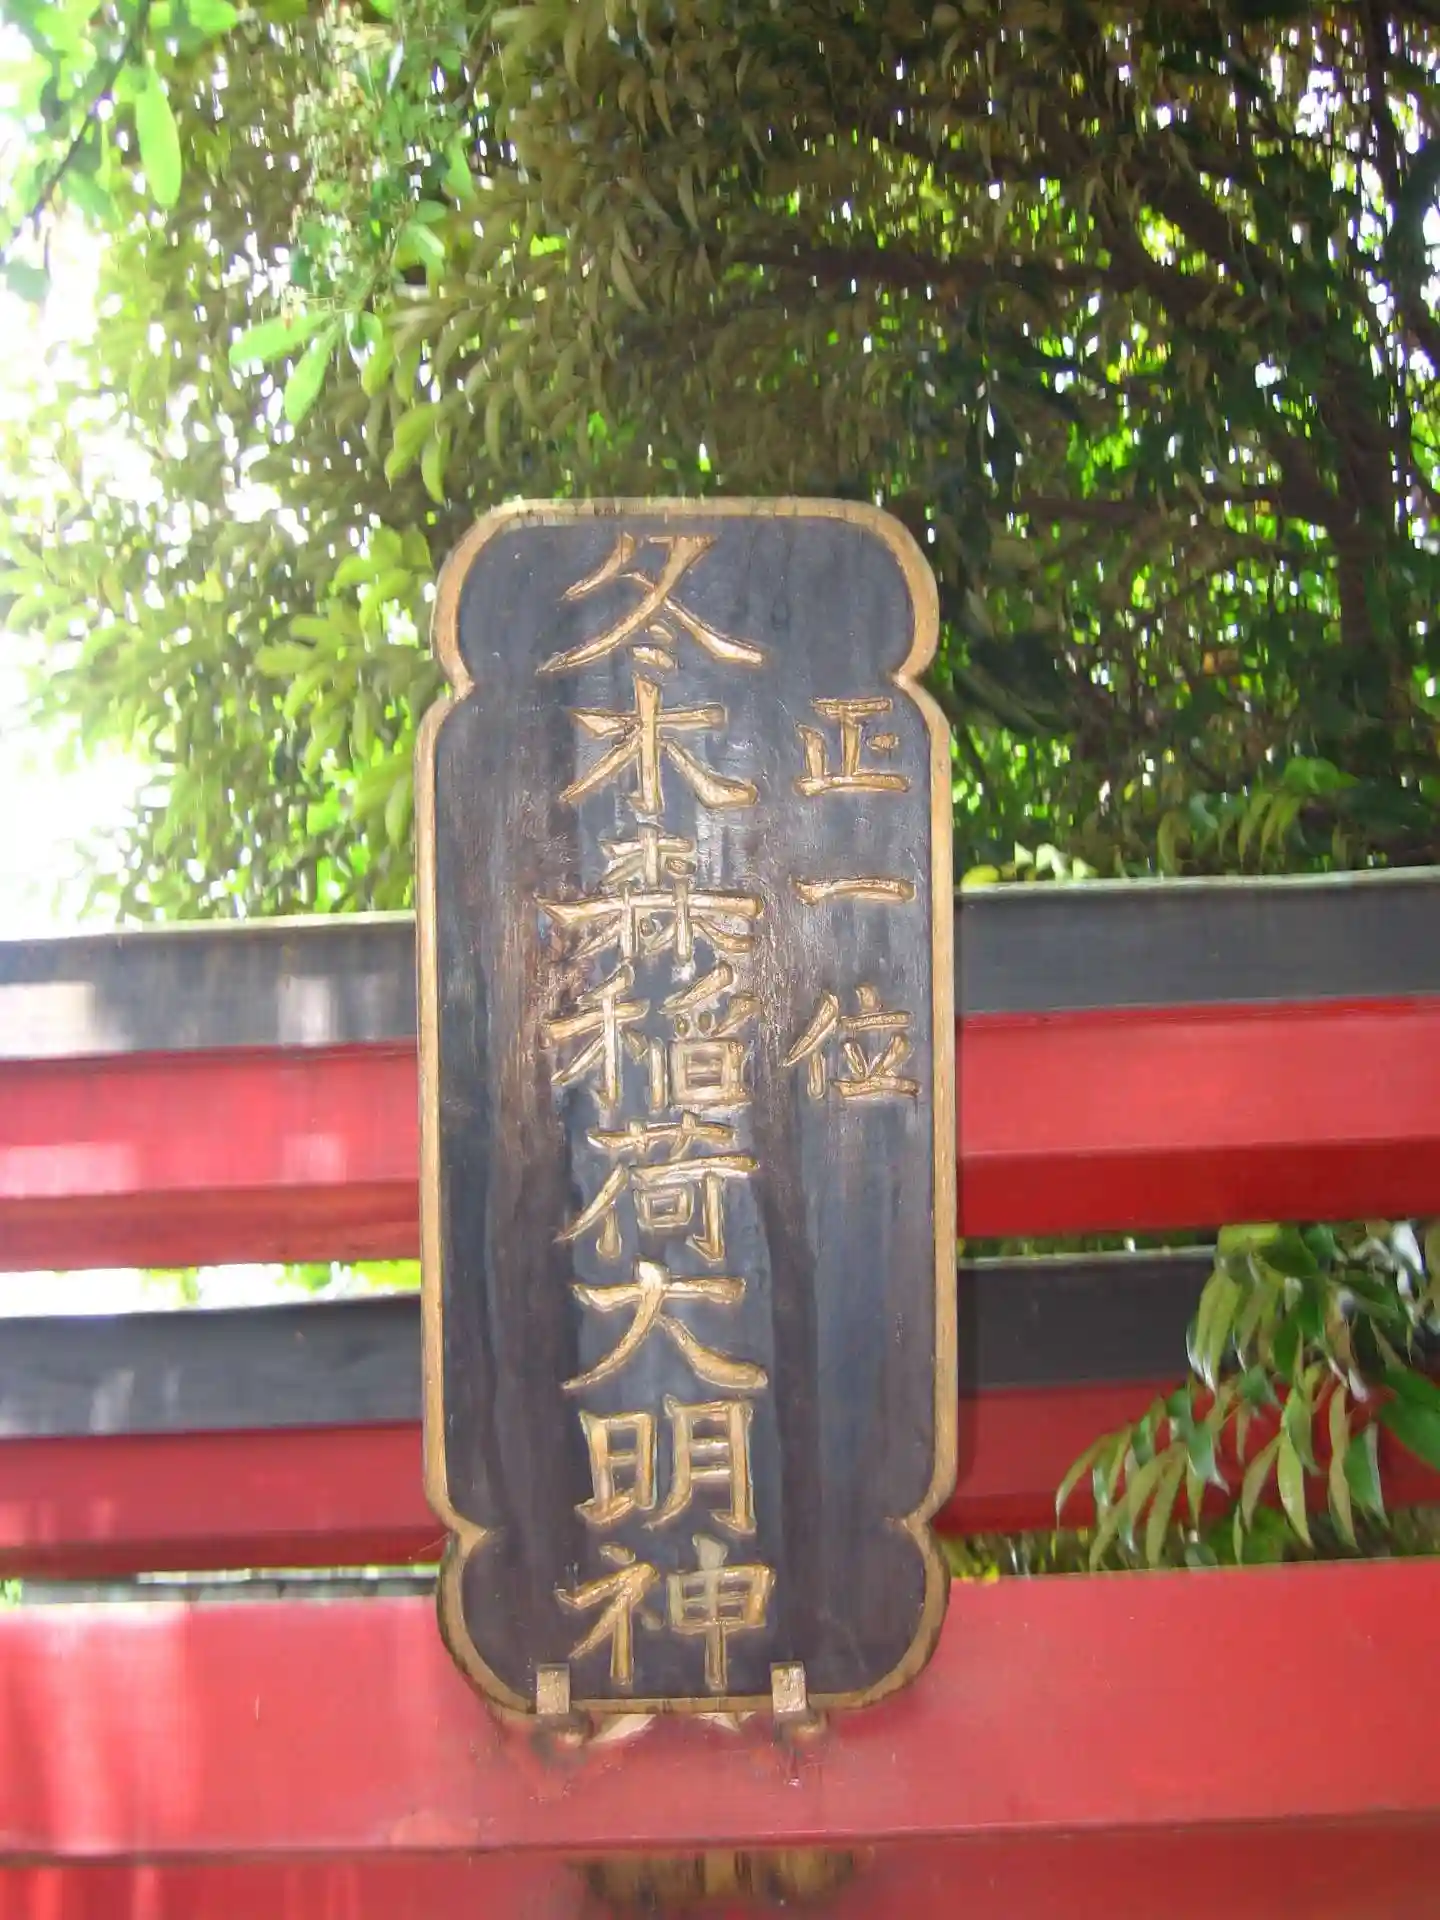 正一位
冬木森稲荷大明神